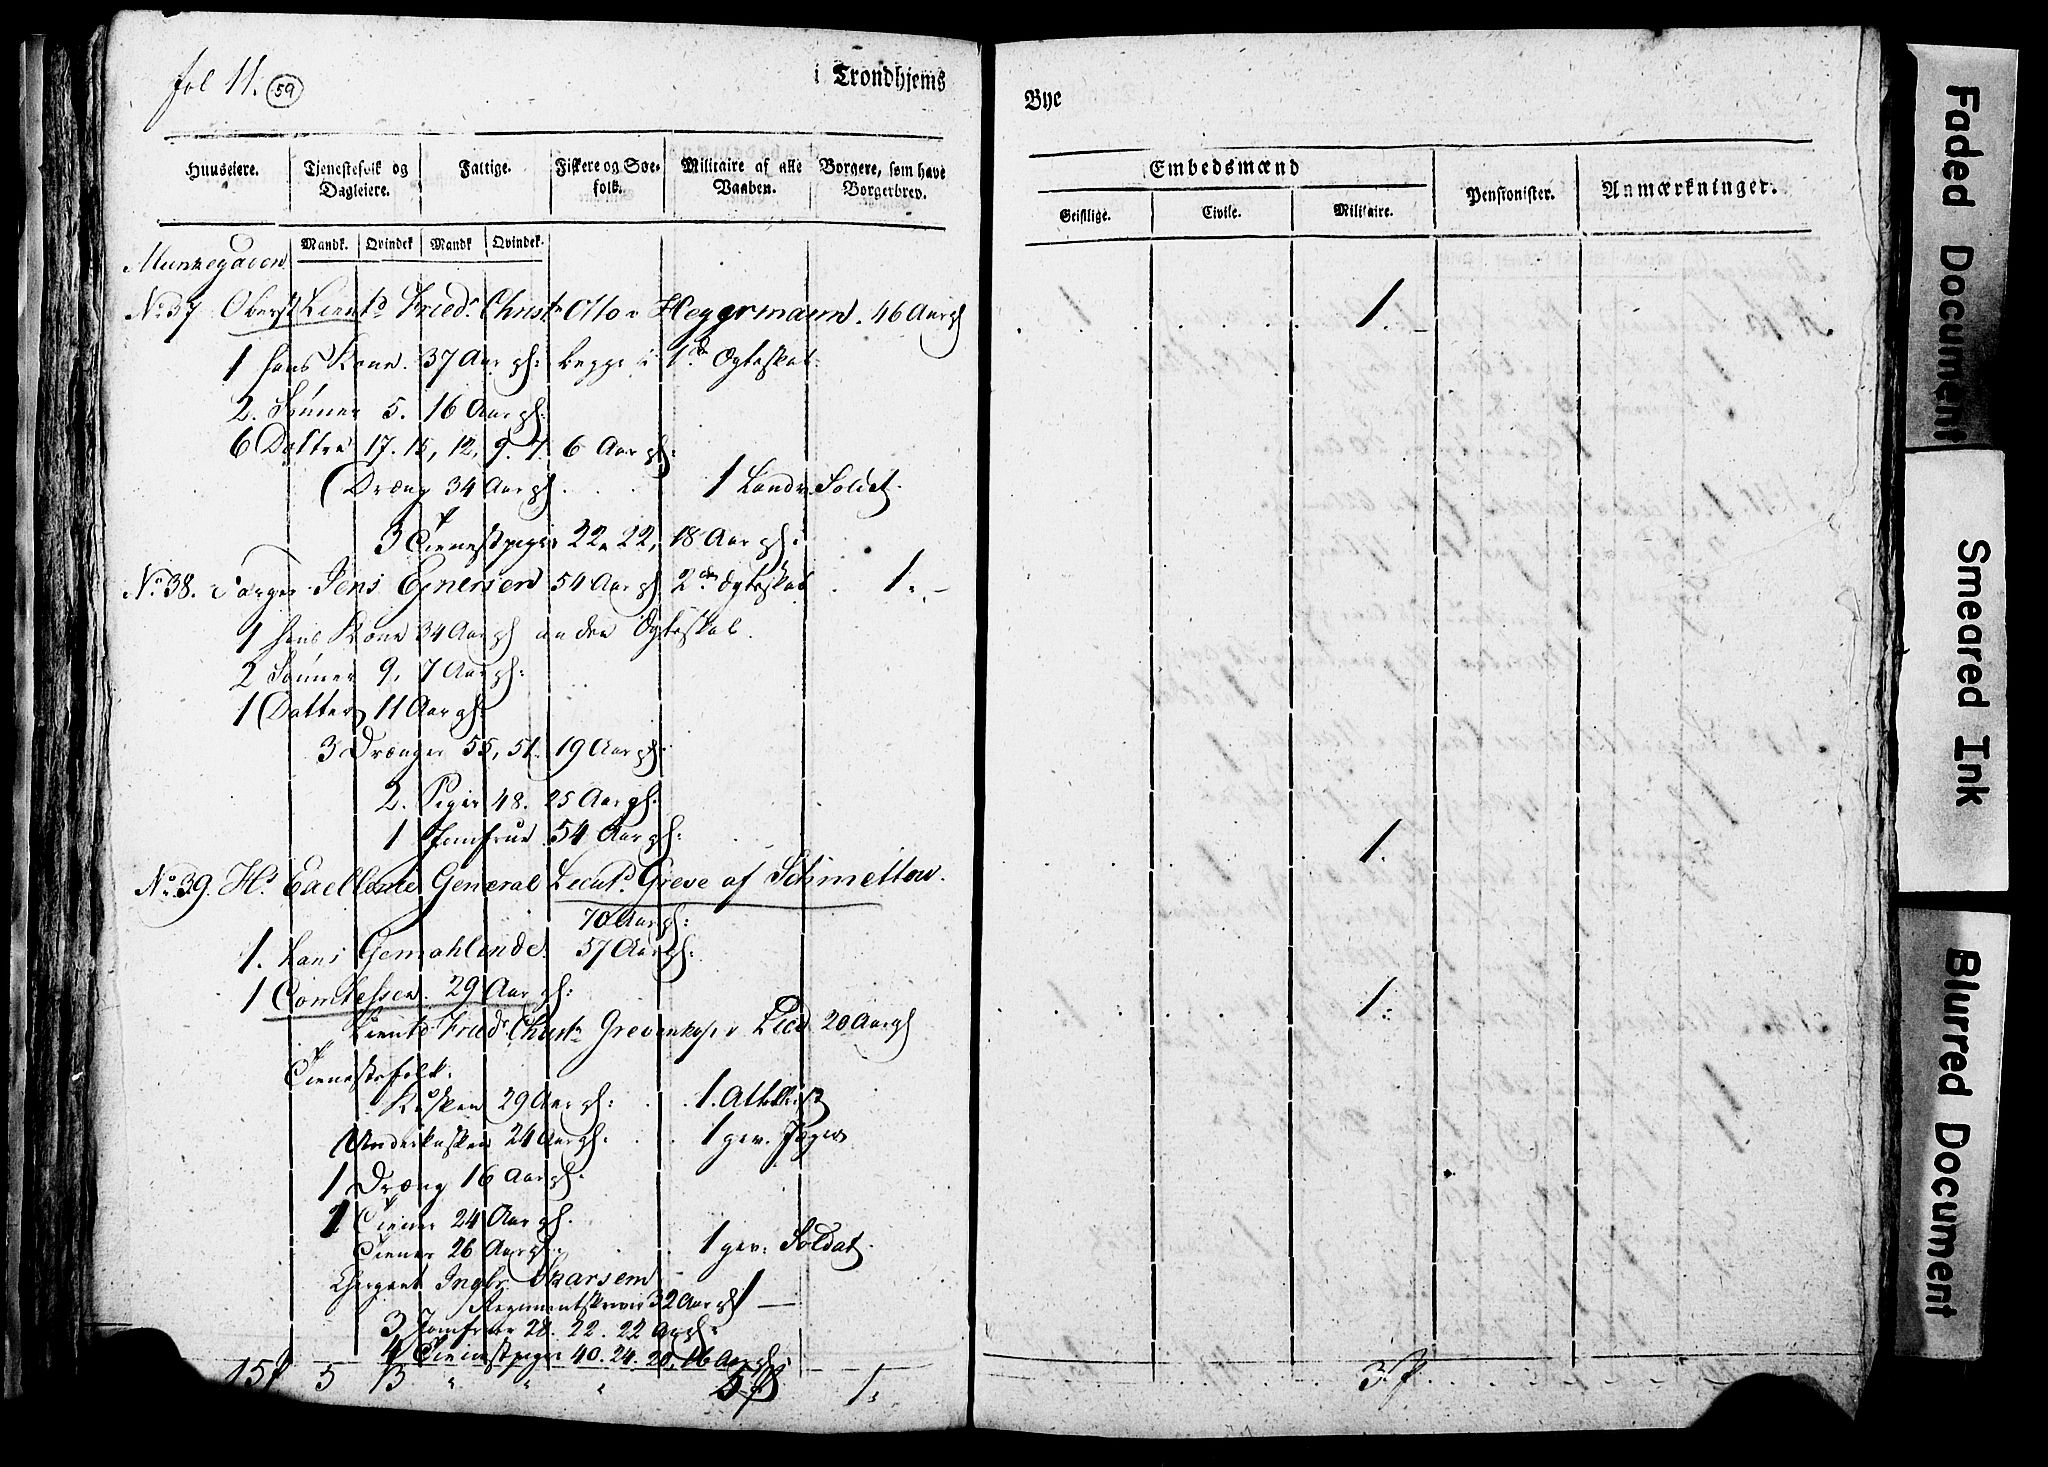 fol 11. 59
i Trondhjems
Huuseiere. Tjenestefolk og Dagleiere. Fattige. Fiskere og Søe- folk. Militaire af alle Vaaben. Borgere, som have Borgerbrev.
Mandk. Qvindek. Mandk Qvindek.
Munkegaden
No 37 Oberst Lieutn Fried. Christ. Otto v Heggermann. 46 Aar gl
1 hans Kone. 37 Aar gl: begge i 1de Ægteskab.
2. Sønner 5. 16 Aar gl.
6 Døttre 17. 15, 12, 9. 7. 6 Aar gl:
1 Dræng 34 Aar gl. 1 Landv. Soldat.
3 Tienestpiger 22. 22, 18 Aar gl:
No 38. Borger Jens Ejnersen 54 Aar gl 2det Ægteskab 1.
1 hans Kone 34 Aar gl andet Ægteskab.
2 Sønner 9, 7 Aar gl:
1 Datter 11 Aar gl.
3 Drænger 55, 51. 19 Aar gl:
2. Piger 48. 25 Aar gl.
1 Jomfrue 54 Aar gl:
No 39. Hs Excellence General Lieut. Greve af Schmettow.
70 Aar gl:
1. hans Gemahlinde 57 Aar gl.
1 Comtessen. 29 Aar gl:
Lieutn Fried. Christ. Grevenkop v 20 Aar gl
Tienestefolk.
Kusken 29 Aar gl: 1.
1 Underkusken 24 Aar gl. 1 gev. Jæger
1 Dræng 16 Aar gl.
2 Tiener 24 Aar gl.
Tiener 26 Aar gl. 1 gev: Soldat.
Skarsem
Regimentskriver 32 Aar gl 1
3 Jomfruer 28. 22. 22 Aar gl:
4 Tienestpiger 40. 24. 20. 16 Aar gl:
15 5 13 " " " 5 1.
Bye
Embedsmænd Pensionister. Anmærkninger.
Geistlige. Civile. Militaire.
1.
1.
1.
3
Faded Document
Smeared Ink
Blurred Document